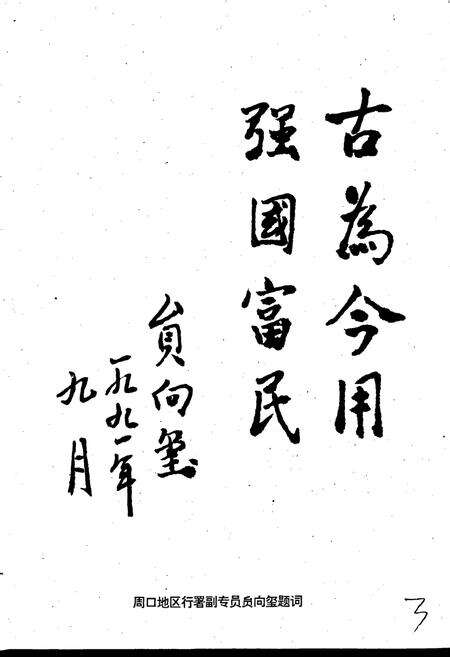 古為今用
强國富民
貟向玺
一九九一年
九月
周口地区行署副专员贠向玺题词
3